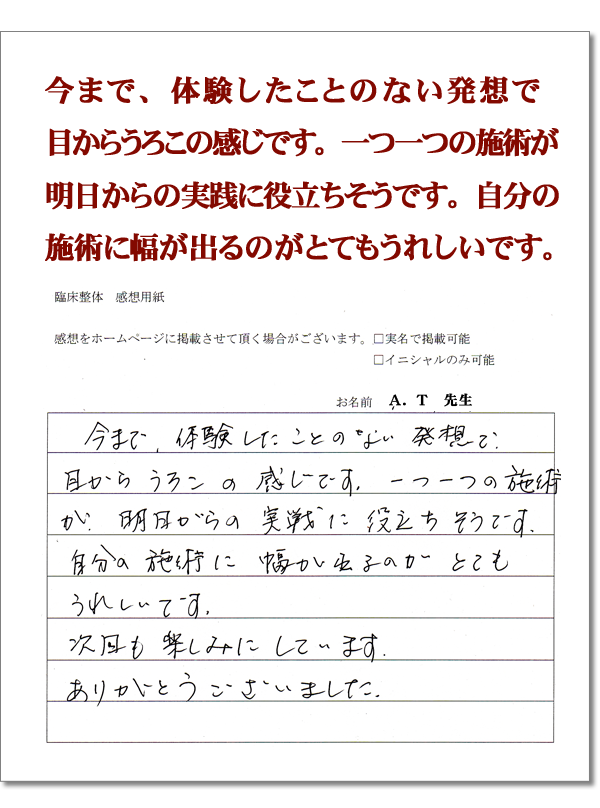 今まで、体験したことのない発想で
目からうろこの感じです。一つ一つの施術が
明日からの実践に役立ちそうです。自分の
施術に幅が出るのがとてもうれしいです。
臨床整体　感想用紙
感想をホームページに掲載させて頂く場合がございます。□実名で掲載可能
□イニシャルのみ可能
お名前　A. T　先生
今まで、体験したことのない発想で、
目からうろこの感じです。一つ一つの施術
が、明日からの実戦に役立ちそうです。
自分の施術に幅が出るのがとても
うれしいです。
次回も楽しみにしています。
ありがとうございました。